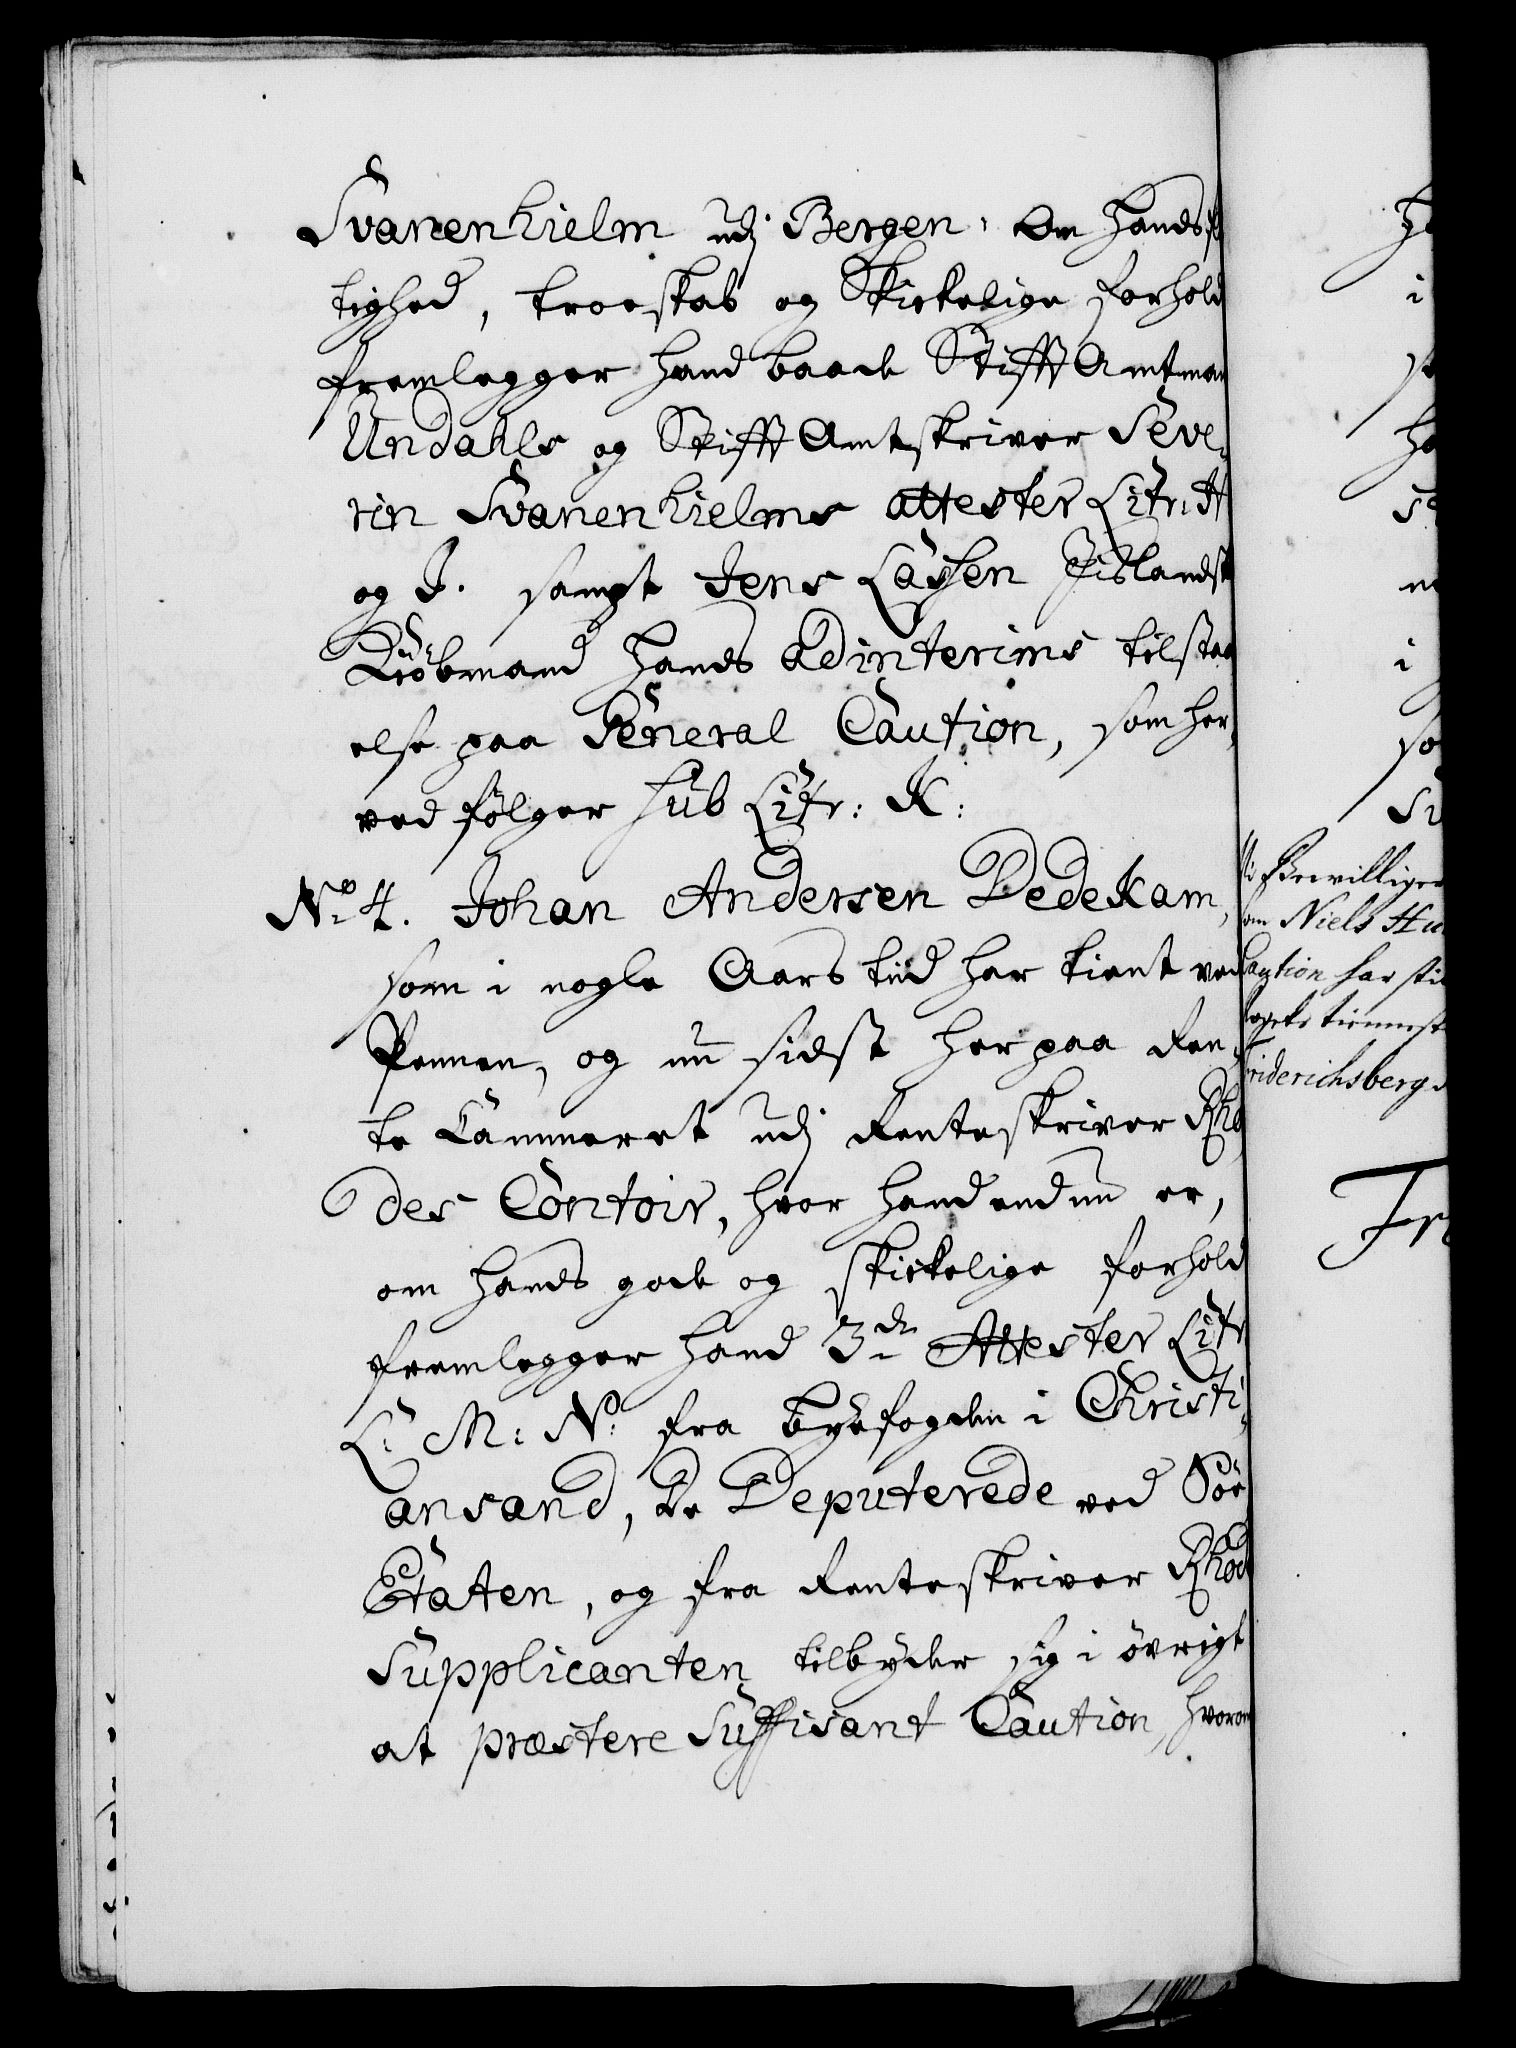 Svanenhielm udj Bergen: Om hands
tighed, troeskab og Skickelige forhold
fremlegger hand baade Stifft Amtman
Undahls og Stifft Amtskriver Seve-
rin Svanenhielms attester Litr: H
og I. sampt Jens Lassen Jislandsk
Kiöbmand hands adinterims tilstaa
else paa General Caution, som her
ved fölger sub Litr: K:
No 4. Johan Andersen Dedekam,
som i nogle Aars tiid har tient ved
Pennen, og nu sidst her paa Ren-
te Cammeret udj Renteskriver Rho
des Contoir, hvor hand end nu er,
om hands gode og skickelige forhold
fremlegger hand 3de Attester Litr
L: M: N: fra byefogden i Christi-
ansand, De Deputerede ved Söe
Etaten, og fra Renteskriver Rhode
Supplicanten tilbyder sig i övrigt
at præstere Suffisant Caution, hvorom
i
i
Bevilliger
Niels
Caution har
tienneste
riderichsberg